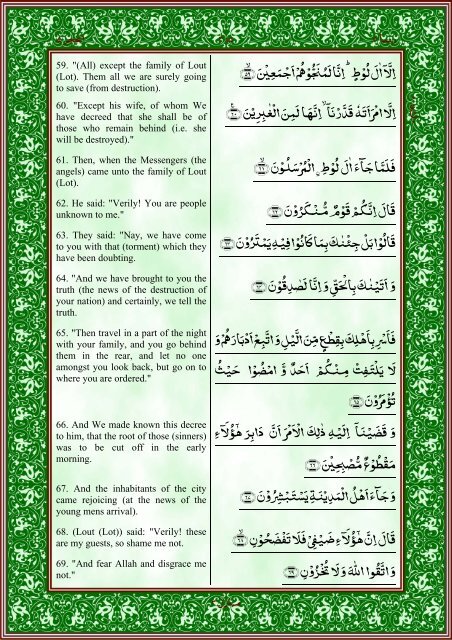 59. "(All) except the family of Lout
(Lot). Them all we are surely going
to save (from destruction).
اِلَّاۤ اٰلَ لُوْطٍ ؕ اِنَّا لَمُنَجُّوْهُمْ اَجْمَعِيْنَ ﴿۵۹﴾
60. "Except his wife, of whom We
have decreed that she shall be of
those who remain behind (i.e. she
will be destroyed)."
اِلَّا امْرَاَتَهٗ قَدَّرْنَاۤ ۙ اِنَّهَا لَمِنَ الْغٰبِرِيْنَ ﴿۶۰﴾
61. Then, when the Messengers (the
angels) came unto the family of Lout
(Lot).
فَلَمَّا جَآءَ اٰلَ لُوْطِ ۣالْمُرْسَلُوْنَ ﴿۶۱﴾
62. He said: "Verily! You are people
unknown to me."
قَالَ اِنَّكُمْ قَوْمٌ مُّنْكَرُوْنَ ﴿۶۲﴾
63. They said: "Nay, we have come
to you with that (torment) which they
have been doubting.
قَالُوْا بَلْ جِئْنٰكَ بِمَا كَانُوْا فِيْهِ يَمْتَرُوْنَ ﴿۶۳﴾
64. "And we have brought to you the
truth (the news of the destruction of
your nation) and certainly, we tell the
truth.
وَ اَتَيْنٰكَ بِالْحَقِّ وَ اِنَّا لَصٰدِقُوْنَ ﴿۶۴﴾
65. "Then travel in a part of the night
with your family, and you go behind
them in the rear, and let no one
amongst you look back, but go on to
where you are ordered."
فَاَسْرِ بِاَهْلِكَ بِقِطْعٍ مِّنَ الَّيْلِ وَ اتَّبِعْ اَدْبَارَهُمْ وَ
لَا يَلْتَفِتْ مِنْكُمْ اَحَدٌ وَّ امْضُوْا حَيْثُ
تُؤْمَرُوْنَ ﴿۶۵﴾
66. And We made known this decree
to him, that the root of those (sinners)
was to be cut off in the early
morning.
وَ قَضَيْنَاۤ اِلَيْهِ ذٰلِكَ الْاَمْرَ اَنَّ دَابِرَ هٰۤؤُلَآءِ
مَقْطُوْعٌ مُّصْبِحِيْنَ ﴿۶۶﴾
67. And the inhabitants of the city
came rejoicing (at the news of the
young mens arrival).
وَ جَآءَ اَهْلُ الْمَدِيْنَةِ يَسْتَبْشِرُوْنَ ﴿۶۷﴾
68. (Lout (Lot)) said: "Verily! these
are my guests, so shame me not.
قَالَ اِنَّ هٰۤؤُلَآءِ ضَيْفِىْ فَلَا تَفْضَحُوْنِ ﴿۶۸﴾
69. "And fear Allah and disgrace me
not."
وَ اتَّقُوا اللّٰهَ وَ لَا تُخْزُوْنِ ﴿۶۹﴾